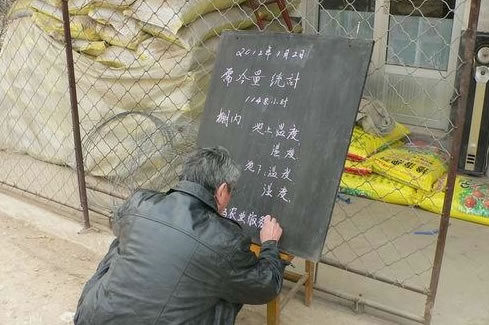 2012年1月2日
需冷量统计
1148小时
棚内 地上温度
湿度
地下温度
湿度